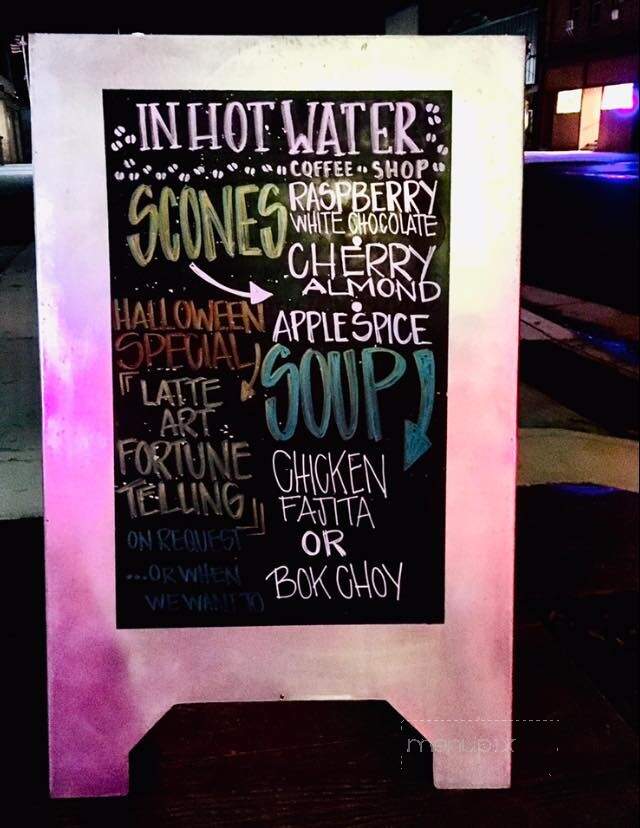 IN HOT WATER
COFFEE SHOP
SCONES
RASPBERRY
WHITE CHOCOLATE
CHERRY
ALMOND
APPLE SPICE
HALLOWEEN
SPECIAL
「LATTE
ART
FORTUNE
TELLING」
ON REQUEST
...OR WHEN
WE WANT TO
SOUP
CHICKEN
FAJITA
OR
BOK CHOY
menupix